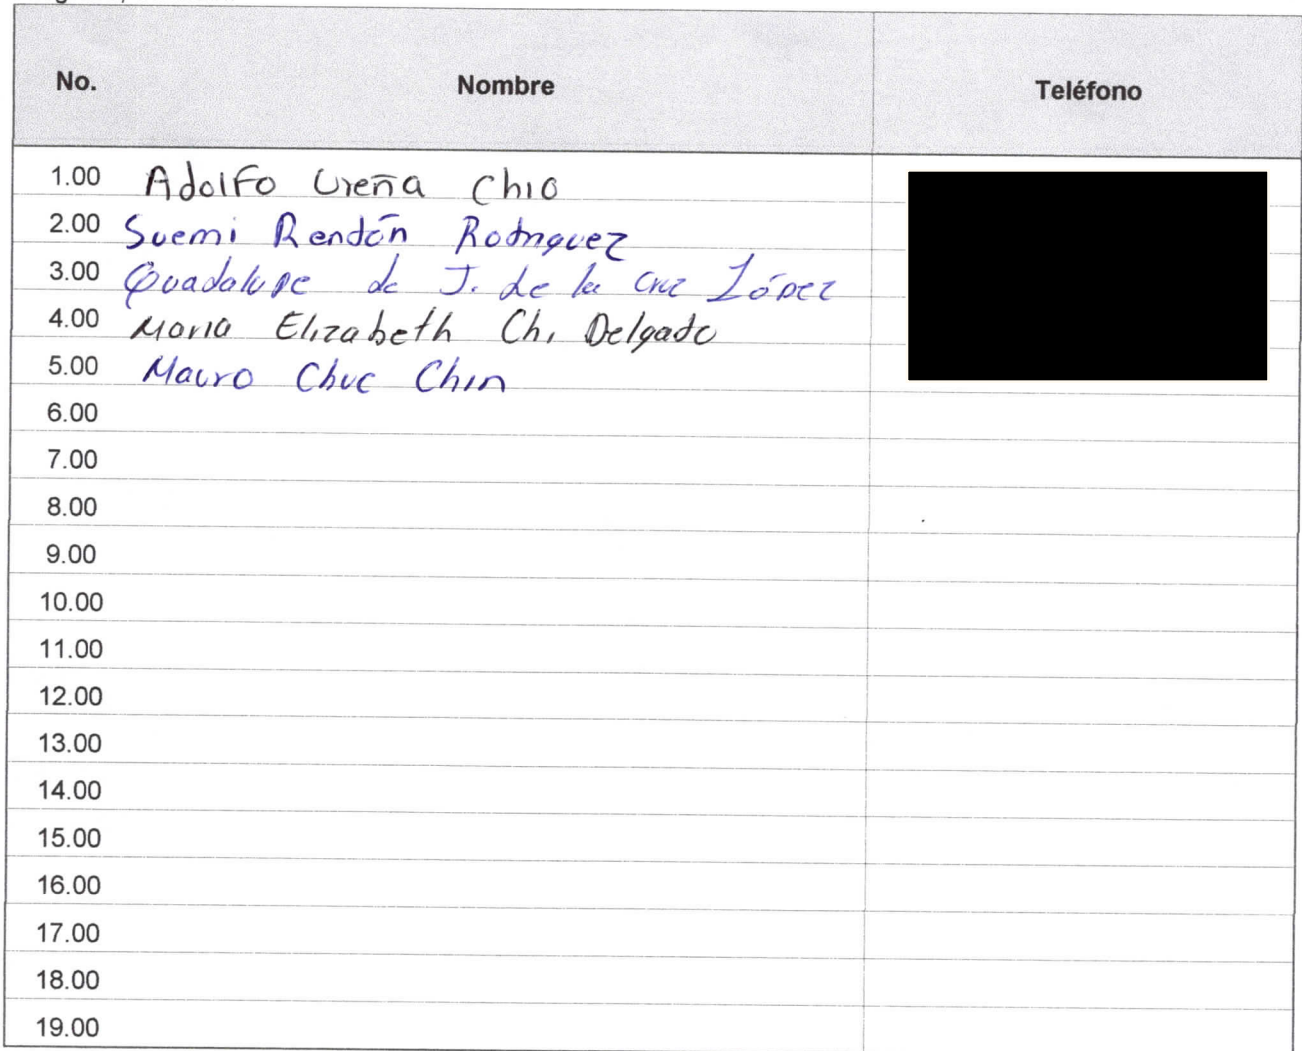 No. Nombre Teléfono
1.00 Adolfo Ureña Chio
2.00 Suemi Rendón Rodriguez
3.00 Guadalupe de J. de la Cruz López
4.00 Maria Elizabeth Chi Delgado
5.00 Mauro Chuc Chin
6.00
7.00
8.00
9.00
10.00
11.00
12.00
13.00
14.00
15.00
16.00
17.00
18.00
19.00